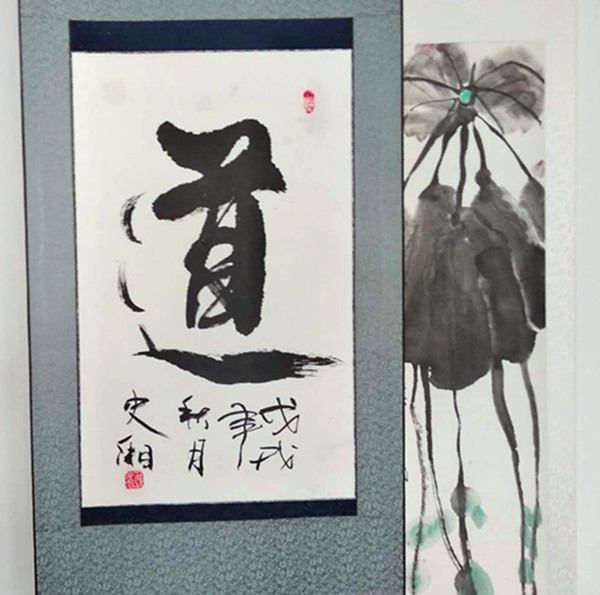 道
戊戌
年
秋月
史湘